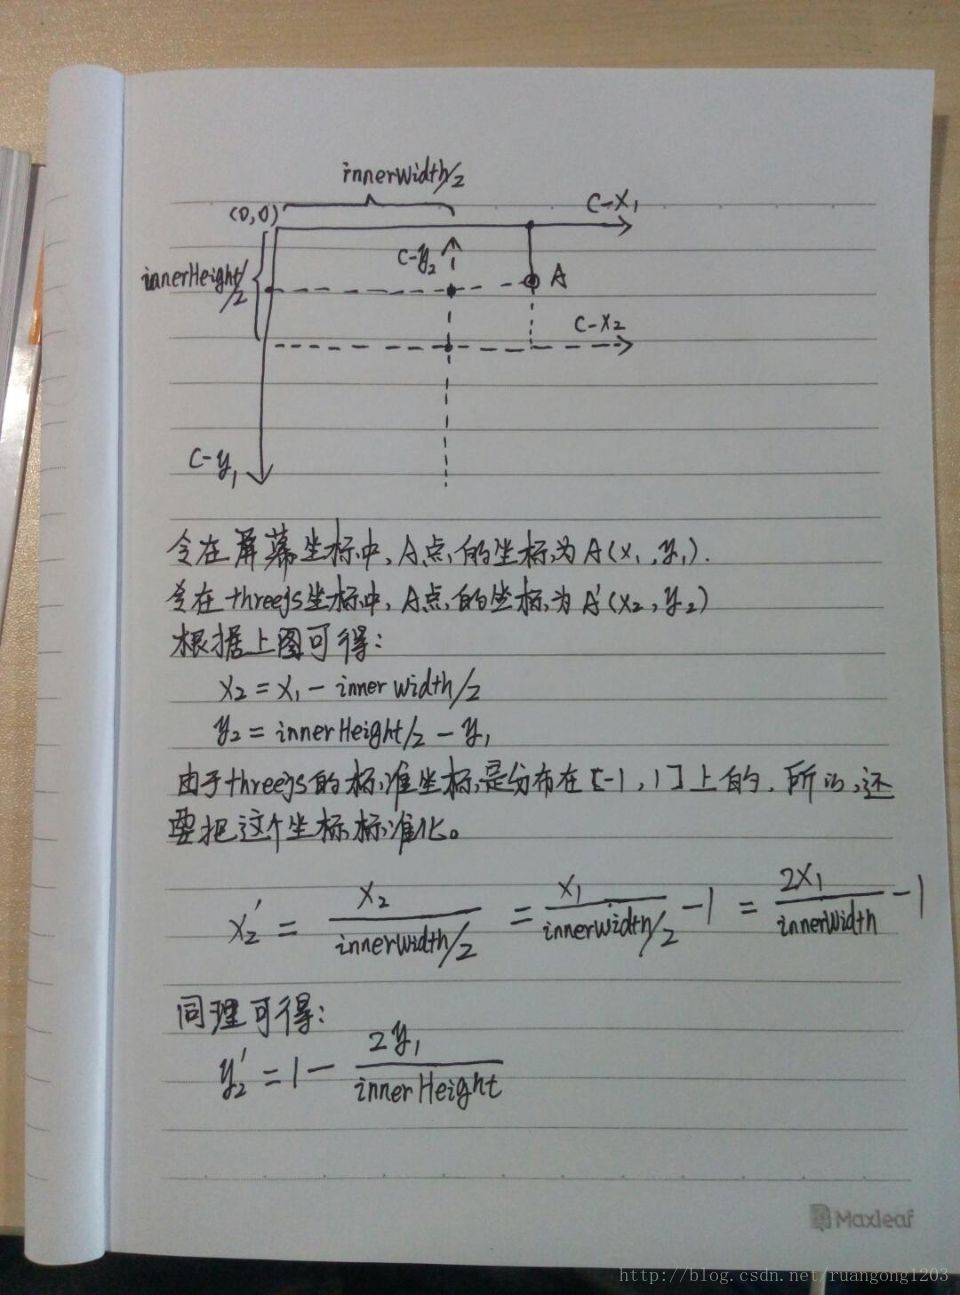 innerWidth/2
(0,0)
C-X₁
C-y₂
A
innerHeight/2
C-X₂
C-y₁
令在屏幕坐标中,A点的坐标为A(x₁,y₁).
令在threejs坐标中,A点的坐标为A'(x₂,y₂)
根据上图可得:
x₂=x₁-innerWidth/2
y₂=innerHeight/2-y₁
由于threejs的标准坐标是分布在[-1,1]上的.所以,还
要把这个坐标标准化。
x₂' = x₂/(innerWidth/2) = x₁/(innerWidth/2) -1 = 2x₁/innerWidth -1
同理可得:
y₂' = 1 - 2y₁/innerHeight
Maxleaf
http://blog.csdn.net/ruangong1203